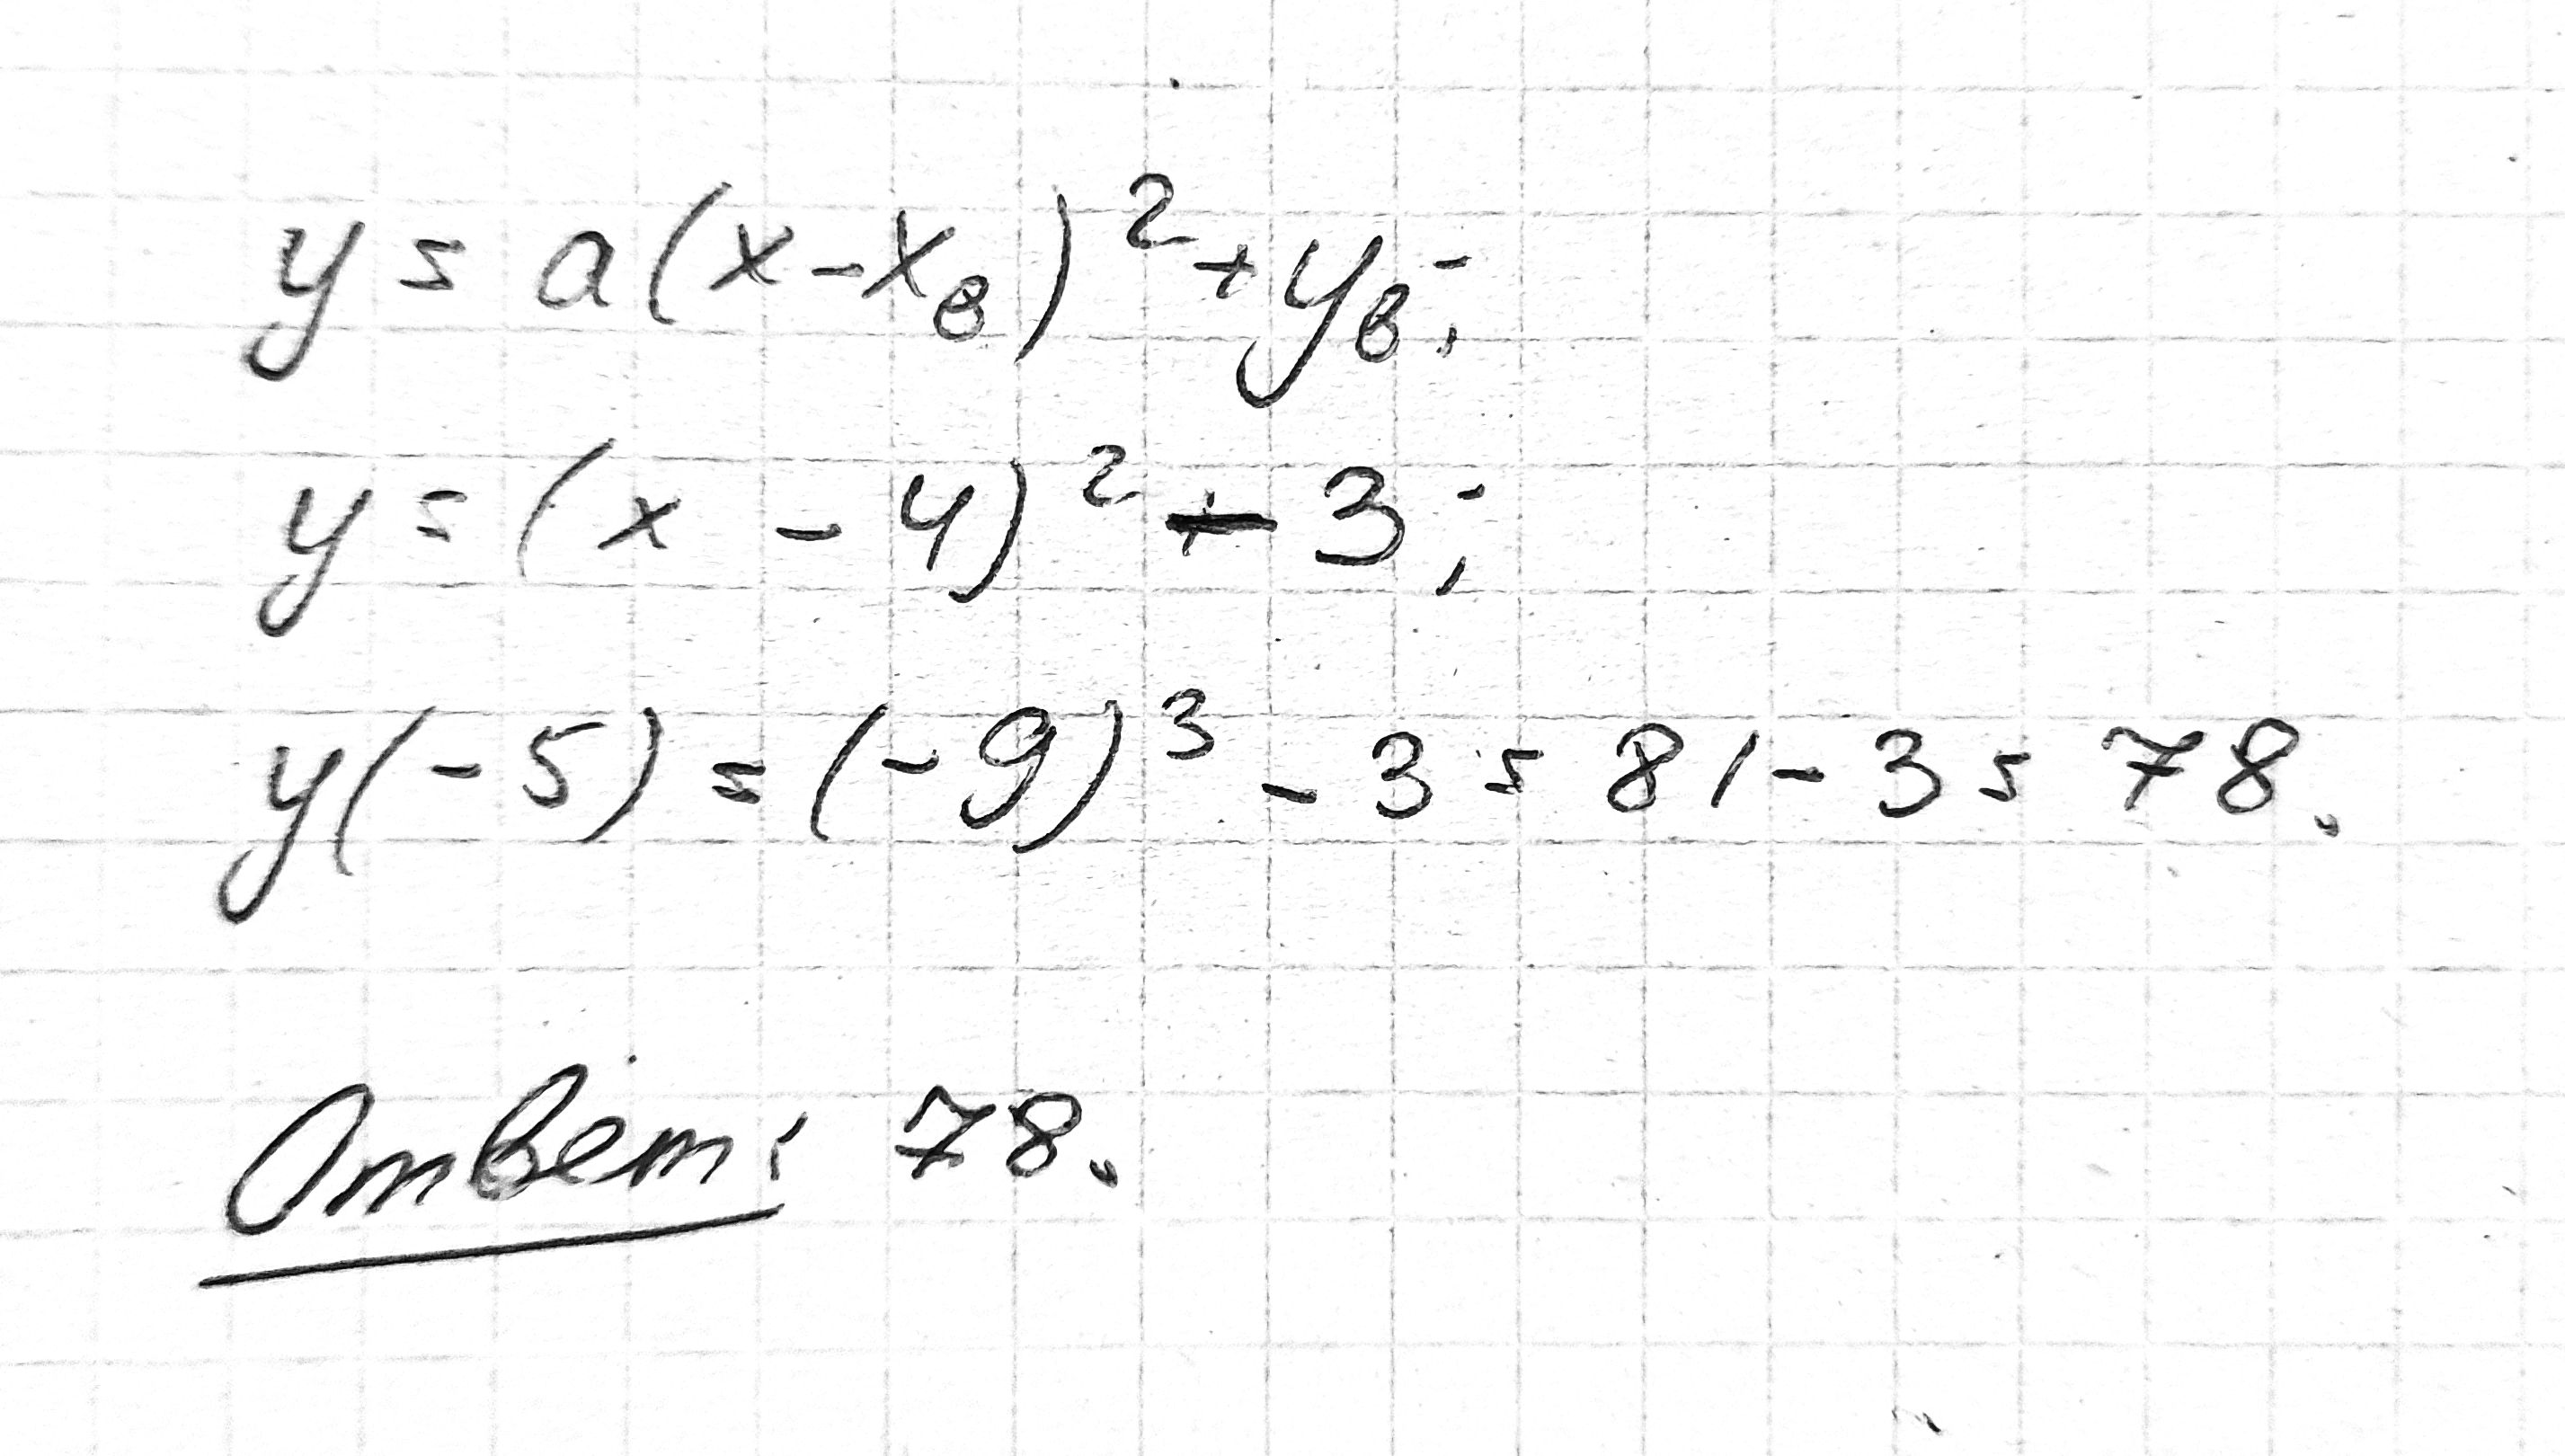 y = a(x - x_в)² + y_в;
y = (x - 4)² - 3;
y(-5) = (-9)³ - 3 = 81 - 3 = 78.
Ответ: 78.